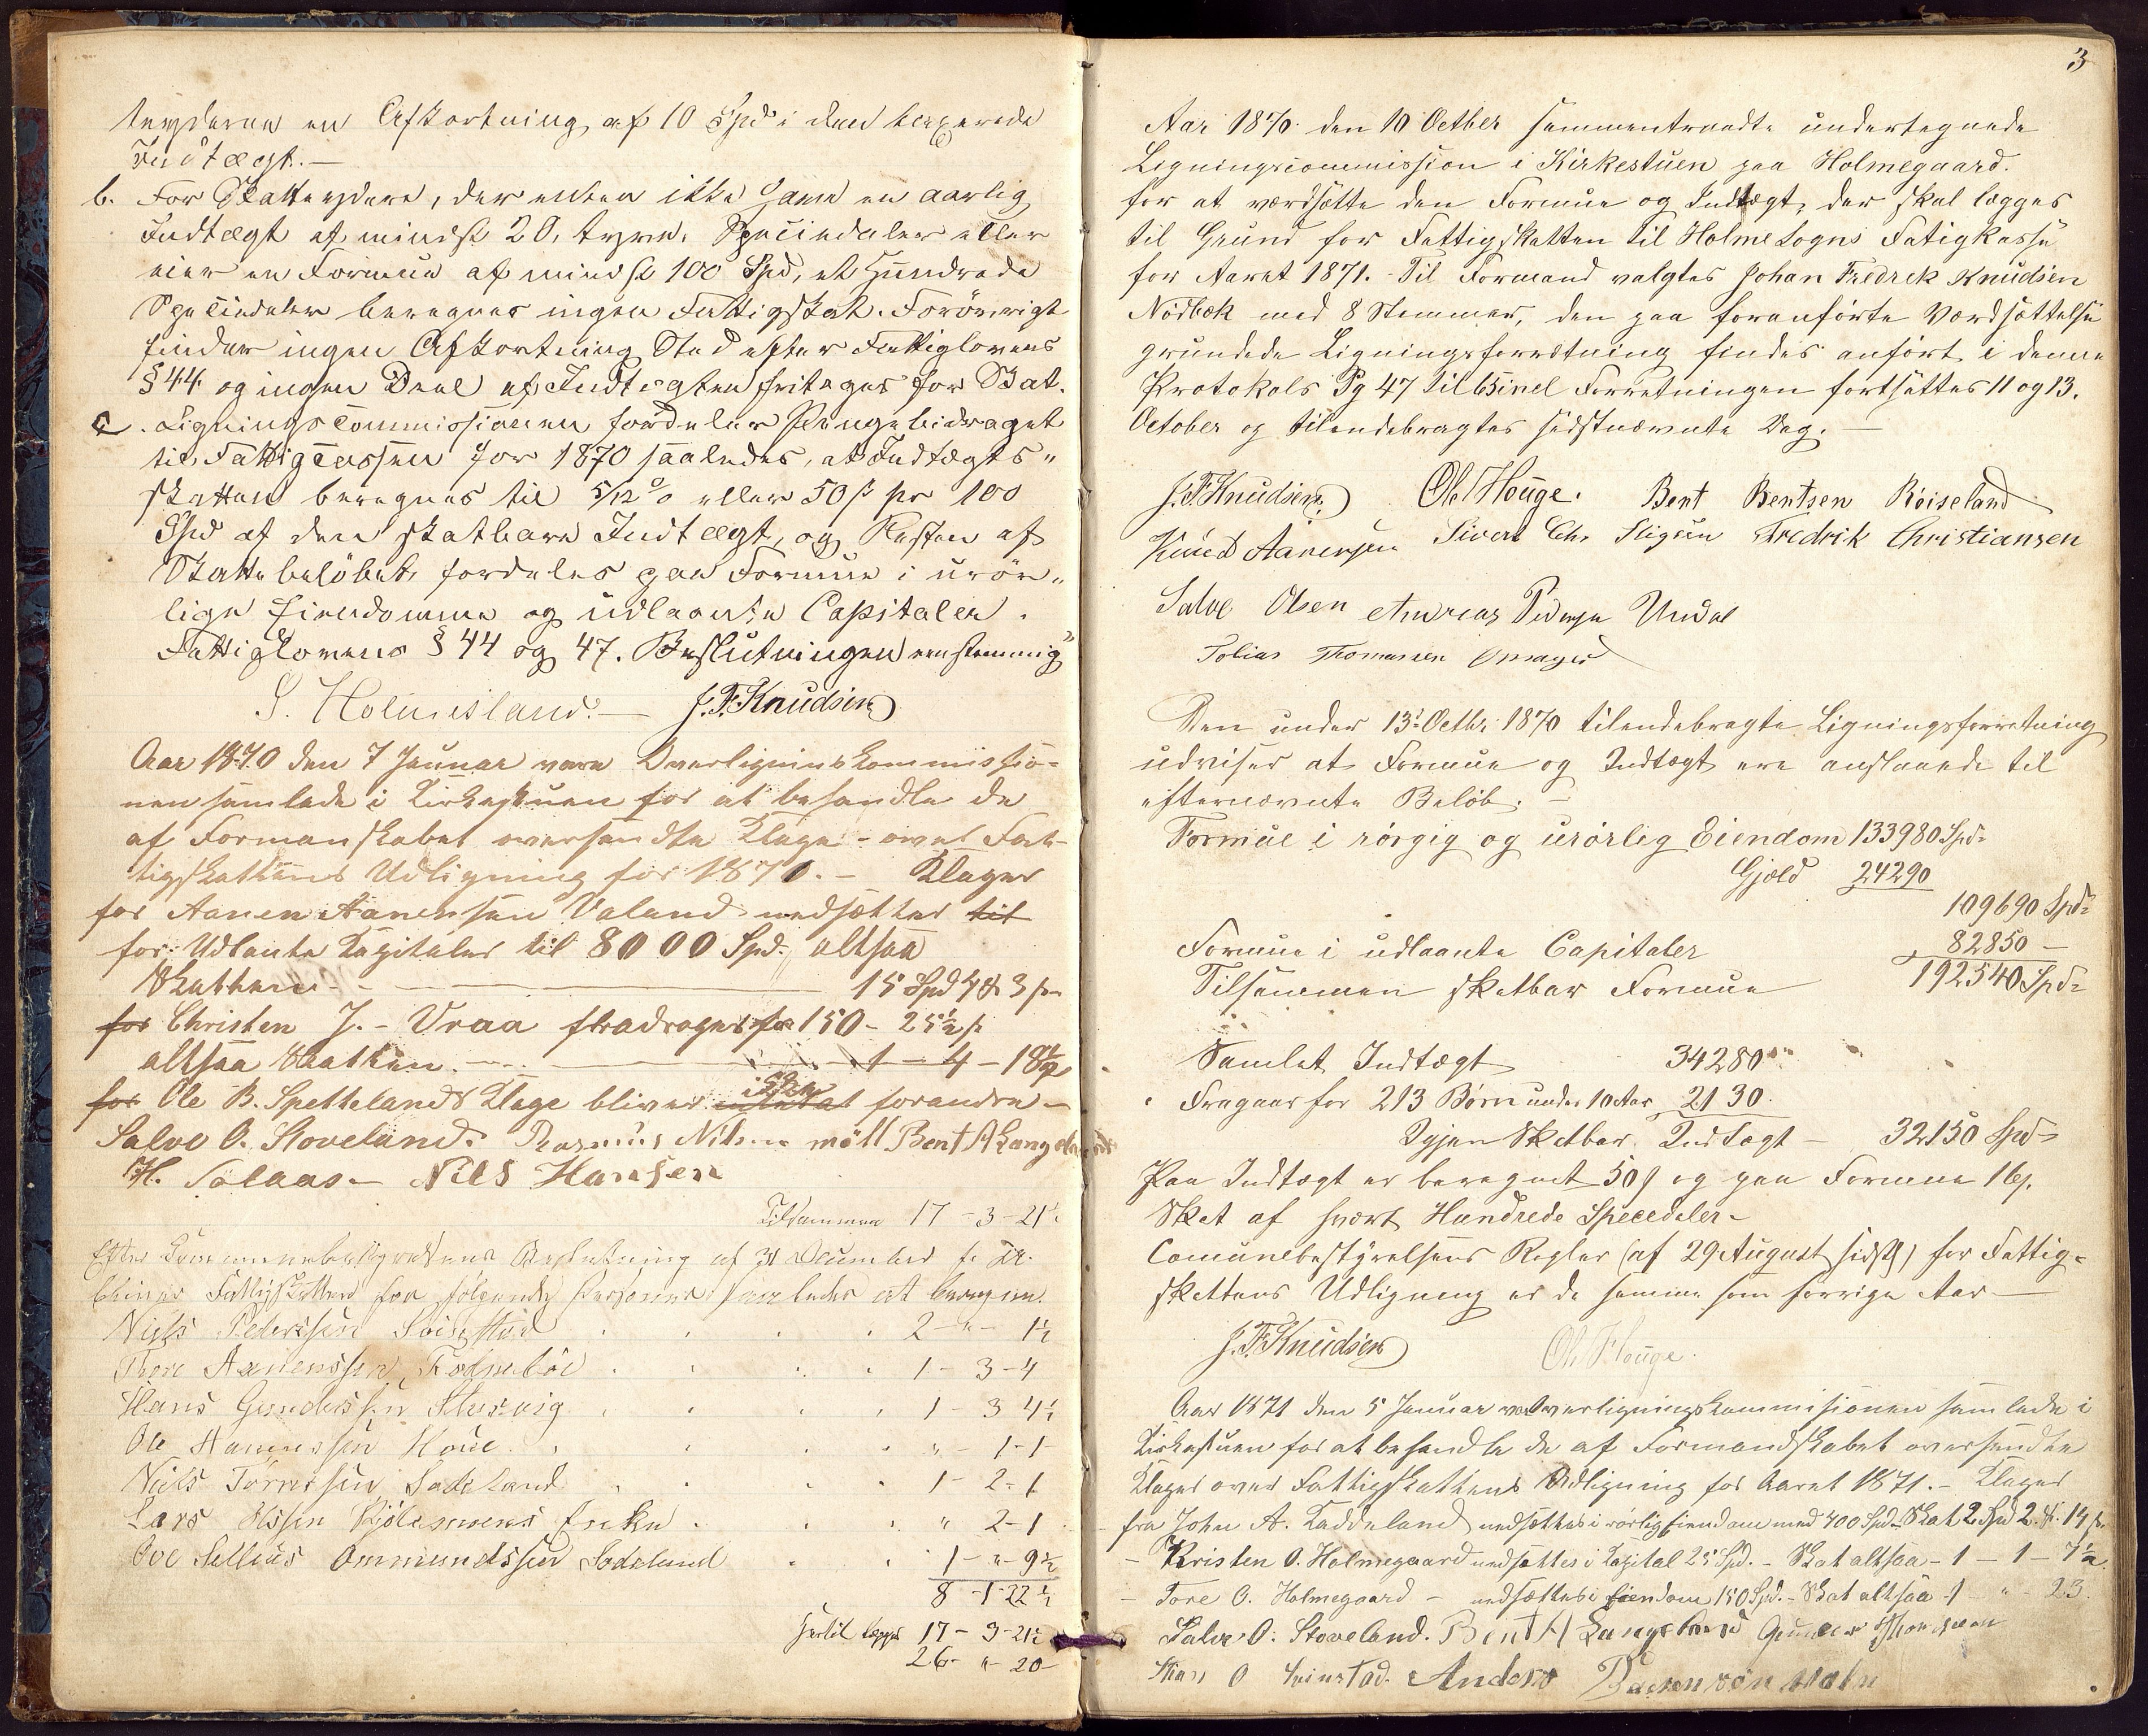 teyderen en Afkortning af 10 Spd i den beregnede
Indtægt. —
b. For Skatteydere, der enten ikke have en aarlig
Indtægt af mindst 20, tyve, Speciedaler eller
eier en Formue af mindst 100 Spd, et Hundrede
Speciedaler beregnes ingen Fattigskat. Forøvrigt
finder ingen Afkortning Sted efter Fattiglovens
§ 44 og ingen Deel af Indtægten fritages for Skat.
c. Ligningscommissionen fordeler Pengebidraget
til Fattigcassen for 1870 saaledes, at Indtægts"
skatten beregnes til 5/12 % eller 50 s pr 100
Spd af den skatbare Indtægt, og Resten af
Skattebeløbet fordeles paa Formue i urør"
lige Eiendomme og udlaante Capitaler.
Fattiglovens § 44 og 47. Beslutningen eenstemmig"
S. Holmesland. — J. F. Knudsen
Aar 1870 den 7 Januar vare Overligninskommissio-
nen samlede i Kirkestuen for at behandle de
af Formanskabet oversendte Klage - over Fat-
tigskattens Udligning for 1870. — Klager
for Aanen Aanensen Valand nedsættes til
for Udlante Kapitaler til 8000 Spd. altsaa
Skatten — 15 Spd 4 ß 3 s
for Christen J. - Vraa fradrages for 150 - 25½ s
altsaa Skatten — 1 - 4 - 18½
for Ole B. Spettelands Klage bliver ikke forandre —
Salve O. Stoveland. Rasmus Nilsen møll Bent A Langeland
H. Solaas — Nils Hansen
Tilsammen 17 - 3 - 21½
Efter Kommunebestyrelsens Beslutning af 31 December f. Ar.
bliver Fattigskatten for følgende Personer saaledes at beregne.
Niels Pedersen 2 - " - 1½
Thore Aanensen 1 - 3 - 4
Hans Gundersen 1 - 3 4½
Ole Hansen Houe " - 1 - 1
Niels Tørresen Sodeland 1 - 2 - 1
Lars Olsen Enke " 2 - 1
Ove Sellius Ommundsen Sodeland 1 - " - 9½
8 - 1 - 22½
Hertil lægges 17 - 3 - 21½
26 - " - 20 -
3
Aar 1870 den 10 Octber sammentraadte undertegnede
Ligningscommission i Kirkestuen paa Holmegaard.
for at værdsætte den Formue og Indtægt, der skal lægges
til Grund for Fattigskatten til Holme Sogns Fatigkasse
for Aaret 1871. - Til Formand valgtes Johan Fredrek Knudsen
Nødbæk med 8 Stemmer, den paa foranførte Værdsættelse
grundede Ligningsforretning findes anført i denne
Protokols Pg 47 til 65 inel Forretningen fortsattes 11 og 13.
October og tilendebragtes sidstnævnte Dag. —
J. F. Knudsen Ole Houge. Bent Bentsen Røiseland
Knud Aanensen Siver Chr Stigsen Fredrik Christiansen
Salve Olsen Andreas Pedersen Undal
Tobias Thomassen
Den under 13 Octbr 1870 tilendebragte Ligningsforretning
udviser at Formue og Indtægt ere anslaaede til
efternævnte Beløb. —
Formue i rørgig og urørlig Eiendom 133980 Spd
Gjæld 24290
109690 Spd
Formue i udlaante Capitaler 82850 —
Tilsammen skatbar Formue 192540 Spd
Samlet Indtægt 34280
Fragaar for 213 Børn under 10 Aar 2130.
Igjen Skatbar Indtægt — 32150 Spd
Paa Indtægt er beregnet 50 s og paa Formue 16 s.
Skat af hvært Hundrede Specedaler -
Comunebestyrelsens Regler (af 29 August sidst) for Fattig-
skattens Udligning er de samme som forrige Aar —
J. F. Knudsen Ole Houge.
Aar 1871 den 5 Januar var Overligningskommisionen samlede i
Kirkestuen for at behandle de af Formandskabet oversendte
Klager over Fattigskattens Udligning for Aaret 1871. - Klager
fra John A. Kaddeland nedsættes i rørlig Eiendom med 400 Spd - Skat 2 Spd 2. ß. 14 s.
- Kristen O. Holmegaard nedsættes i Kapital 25 Spd. - Skat altsaa - 1 — 1 - 7½
- Tore O. Holmegaard - nedsættes i Eiendom 150 Spd. - Skat altsaa - 1 - " - 23.
Salve O. Stoveland. Bent A Langeland Gunder
O Anders